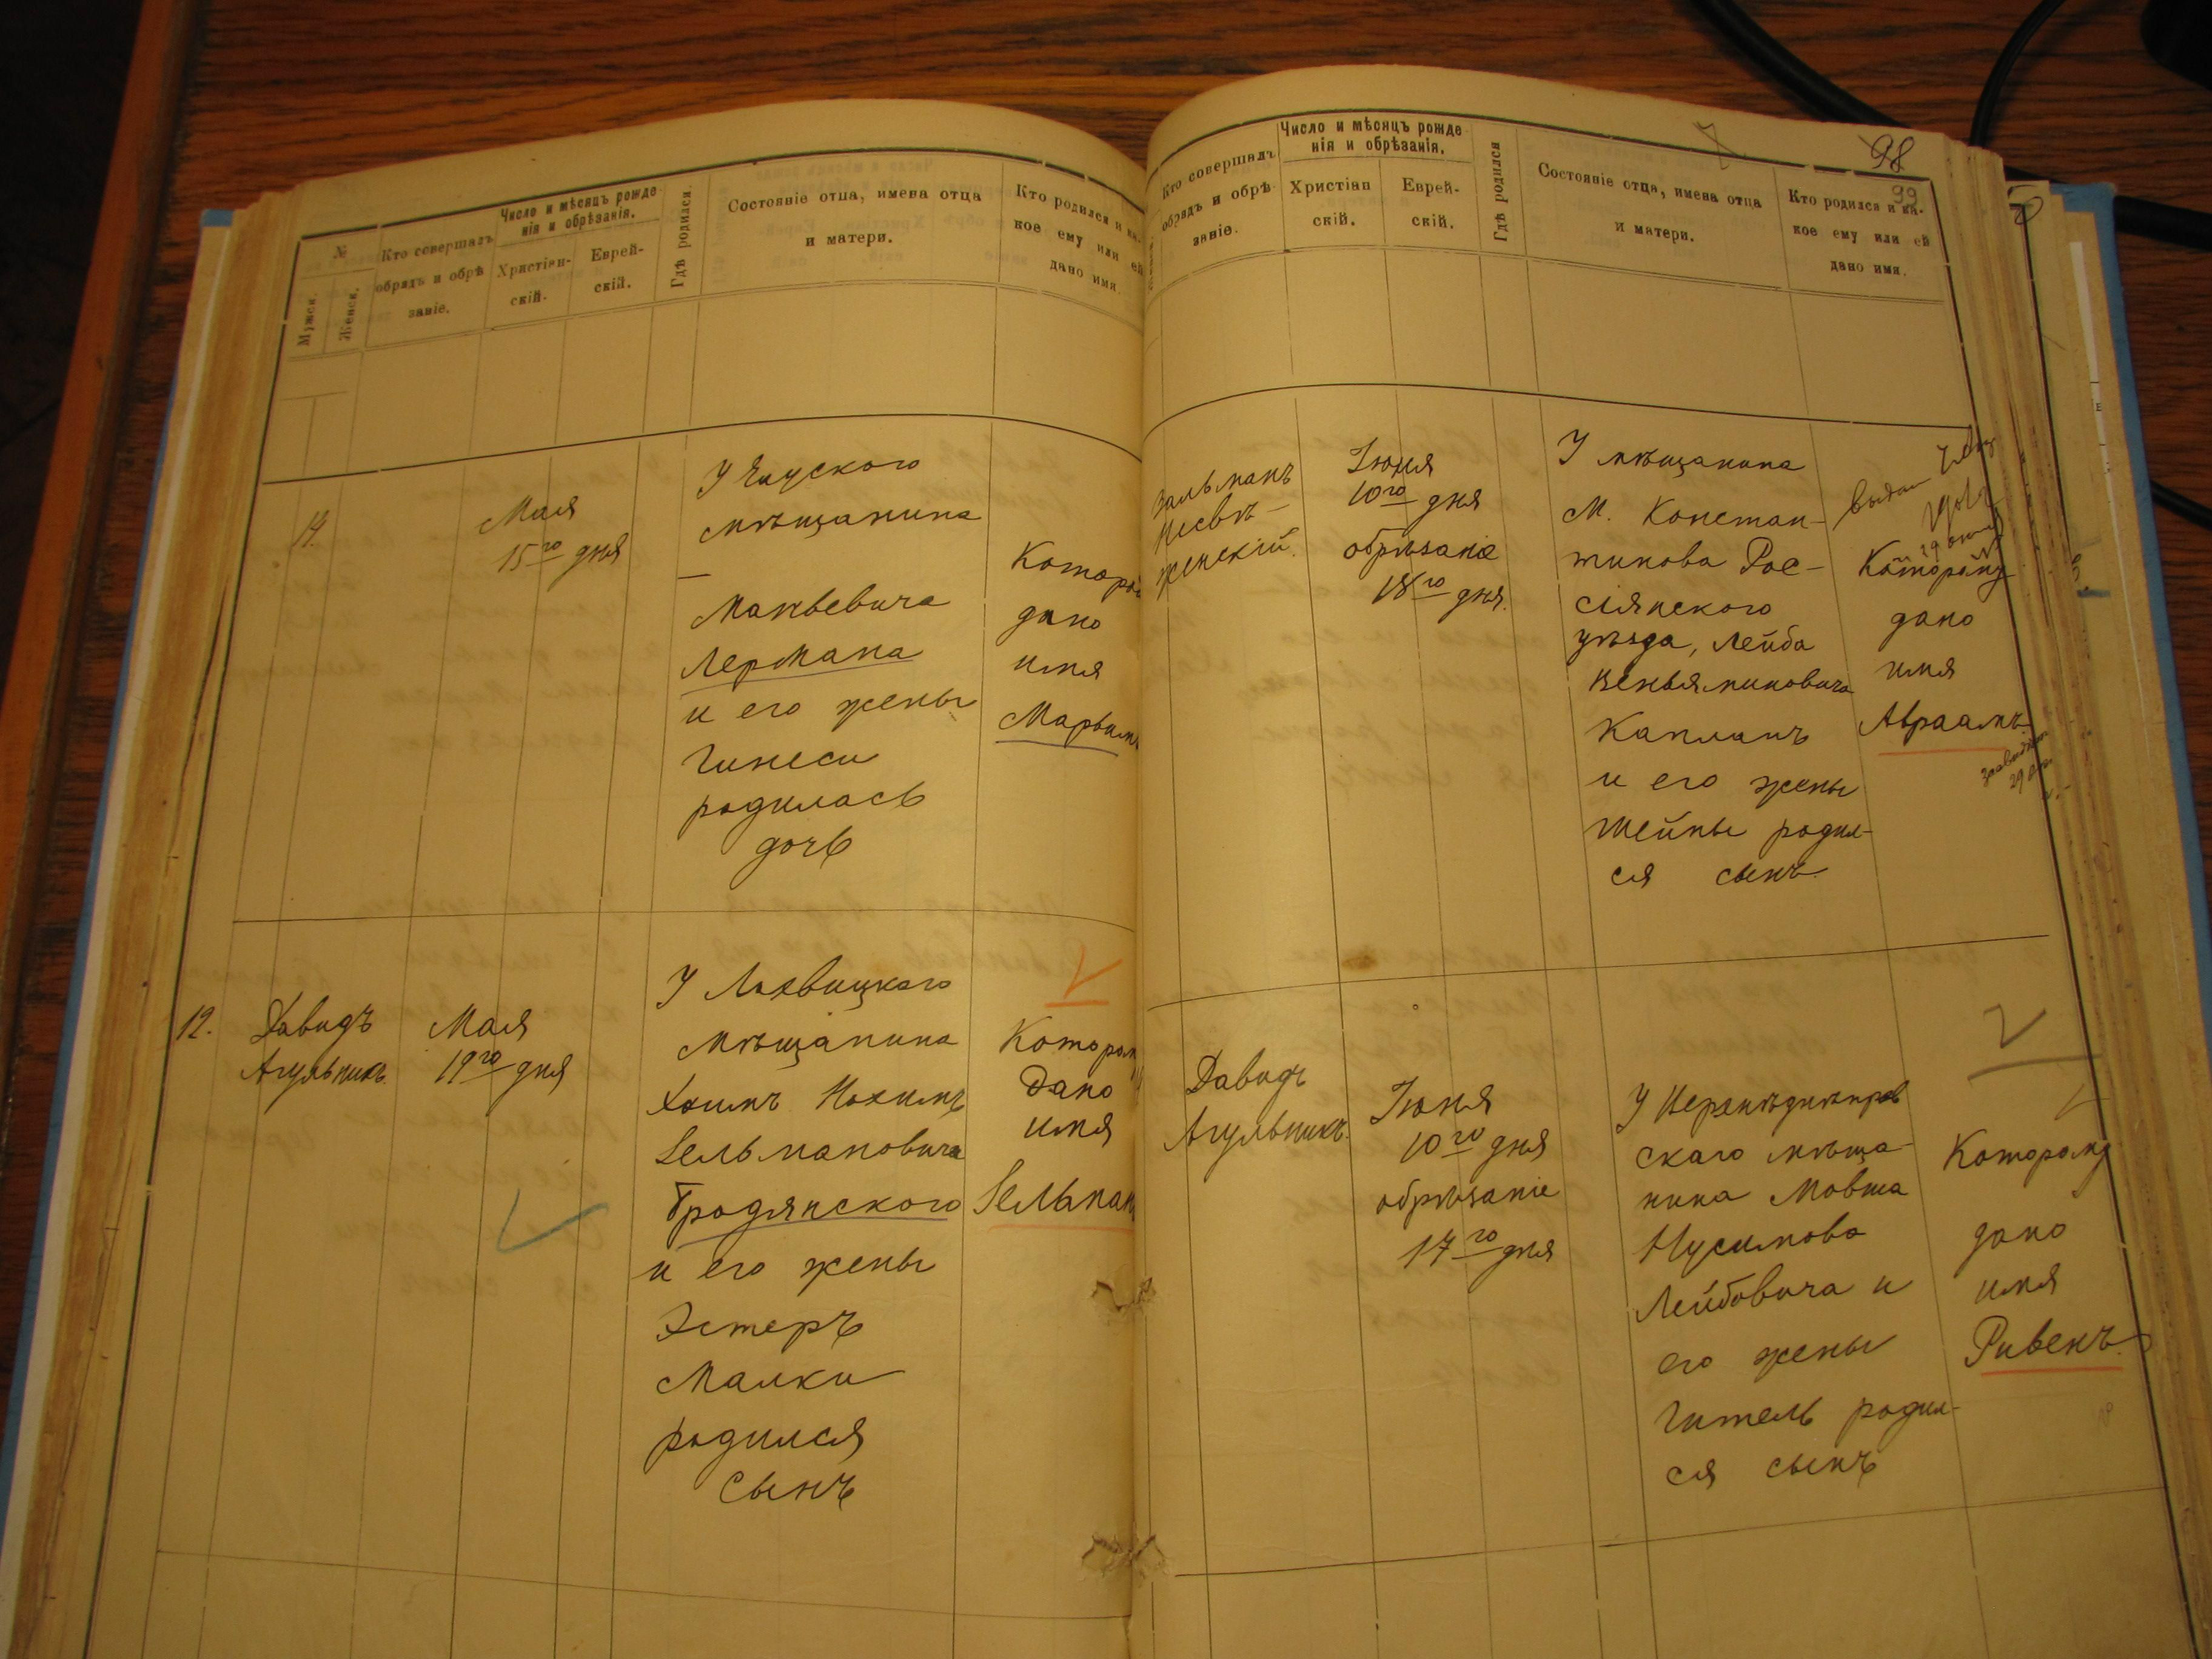 №
Мужск.
Женск.
Кто совершалъ
обрядъ и обрѣ
заніе.
Число и мѣсяцъ рожде
нія и обрѣзанія.
Христіан-
скій.
Еврей-
скій.
Гдѣ родился
Состояніе отца, имена отца
и матери.
Кто родился и ка-
кое ему или ей
дано имя.
14.
Мая
15го дня
У
мѣщанина
Маньевича
Лермана
и его жены
Гинеси
родилась
дочь
Которой
дано
имя
Марьямъ
12.
Давидъ
Агульникъ.
Мая
19го дня
У Лохвицкаго
мѣщанина
Хаимъ Нохимъ
Зельмановича
Гродянского
и его жены
Эстеръ
Малки
родился
сынъ
Котором
Дано
имя
Зельман
98
99
Кто совершалъ
обрядъ и обрѣ
заніе.
Число и мѣсяцъ рожде
нія и обрѣзанія.
Христіан
скій.
Еврей-
скій.
Гдѣ родился
Состояніе отца, имена отца
и матери.
Кто родился и ка-
кое ему или ей
дано имя.
Зальманъ
Несвѣ-
женскій.
Іюня
10го дня
обрѣзаніе
18го дня.
У мѣщанина
М. Констан-
тинова Рос-
сіянского
уѣзда, Лейба
Веньяминовича
Капланъ
и его жены
Шейны родил-
ся сынъ.
выдан
Которому
дано
имя
Авраамъ.
Давидъ
Агульникъ.
Іюня
10го дня
обрѣзаніе
17го дня
У Верхнѣднѣпров
скаго мѣща-
нина Мовша
Нусимова
Лейбовича и
его жены
Гитель родил-
ся сынъ
Которому
дано
имя
Рувенъ.